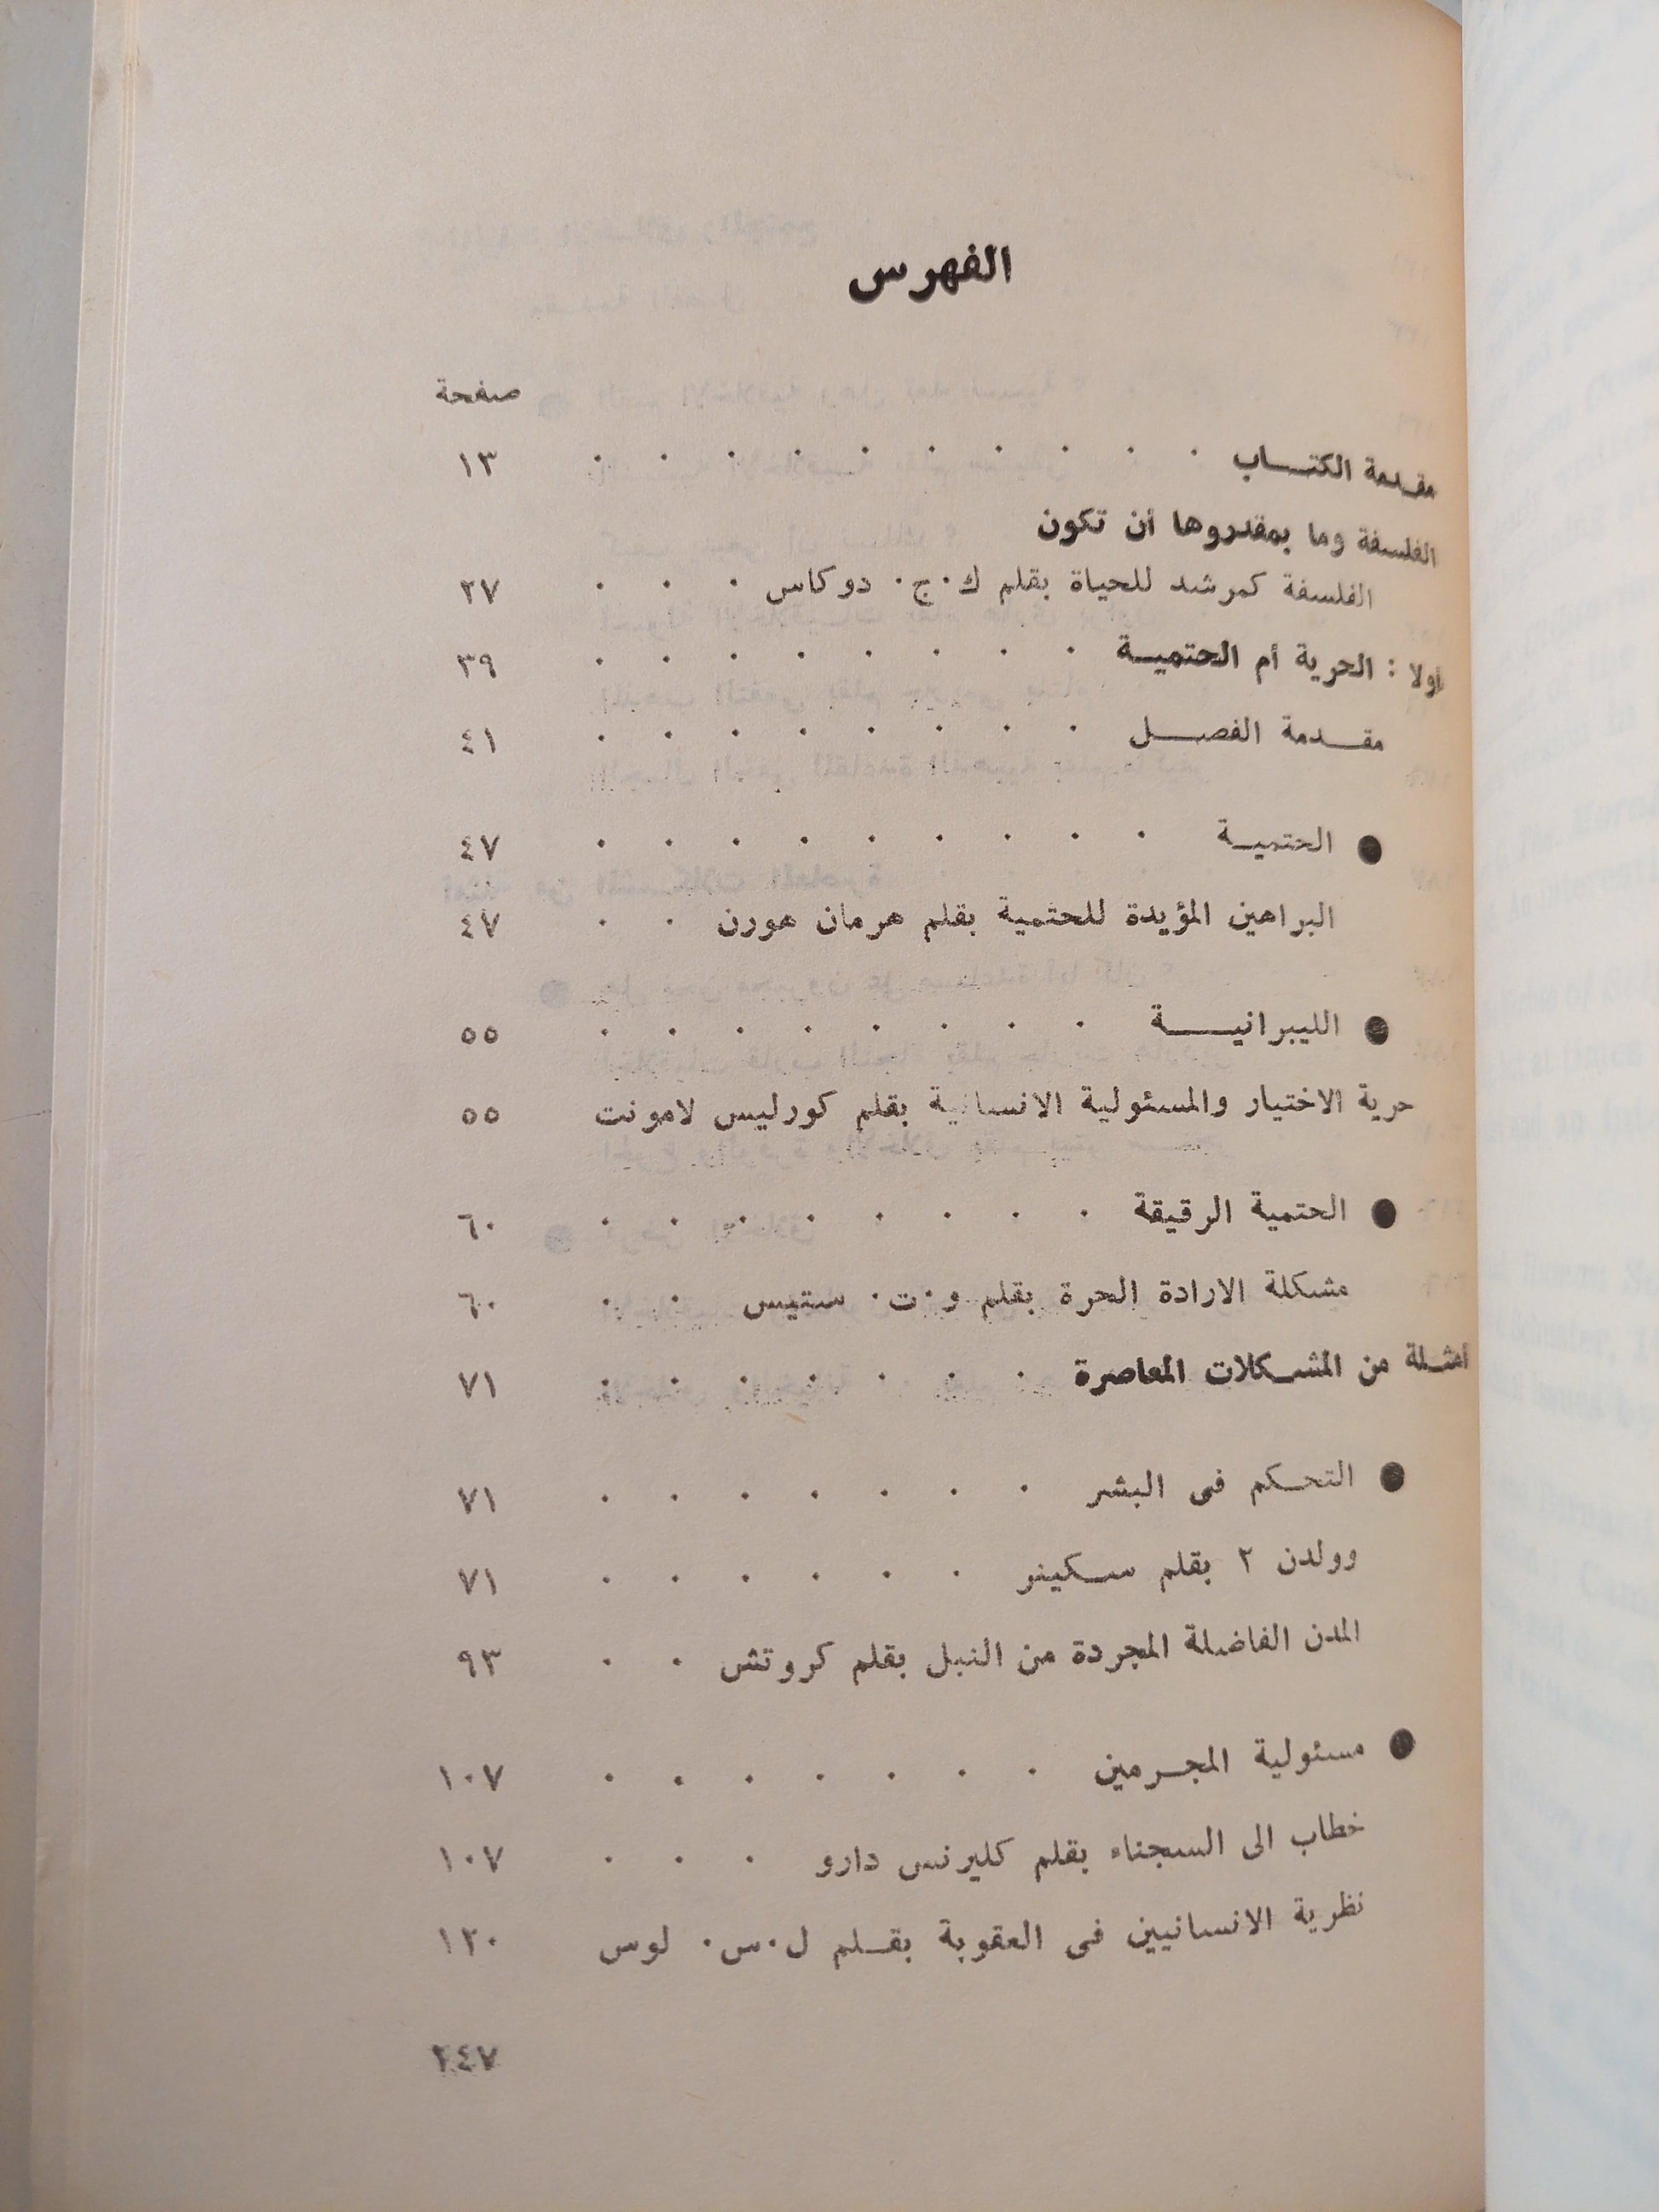 الفهرس
صفحة
مقدمة الكتاب ١٣
الفلسفة وما بمقدورها أن تكون
الفلسفة كمرشد للحياة بقلم ك.ج. دوكاس ٢٧
أولا : الحرية أم الحتمية ٣٩
مقدمة الفصل ٤١
● الحتمية ٤٧
البراهين المؤيدة للحتمية بقلم هرمان هورن ٤٧
● الليبرانية ٥٥
حرية الاختيار والمسئولية الانسانية بقلم كورليس لامونت ٥٥
● الحتمية الرقيقة ٦٠
مشكلة الارادة الحرة بقلم و.ت. ستيس ٦٠
أمثلة من المشكلات المعاصرة ٧١
● التحكم فى البشر ٧١
وولدن ٢ بقلم سكينر ٧١
المدن الفاضلة المجردة من النبل بقلم كروتش ٩٣
● مسئولية المجرمين ١٠٧
خطاب الى السجناء بقلم كليرنس دارو ١٠٧
نظرية الانسانيين فى العقوبة بقلم ل.س. لوس ١٢٠
٢٤٧